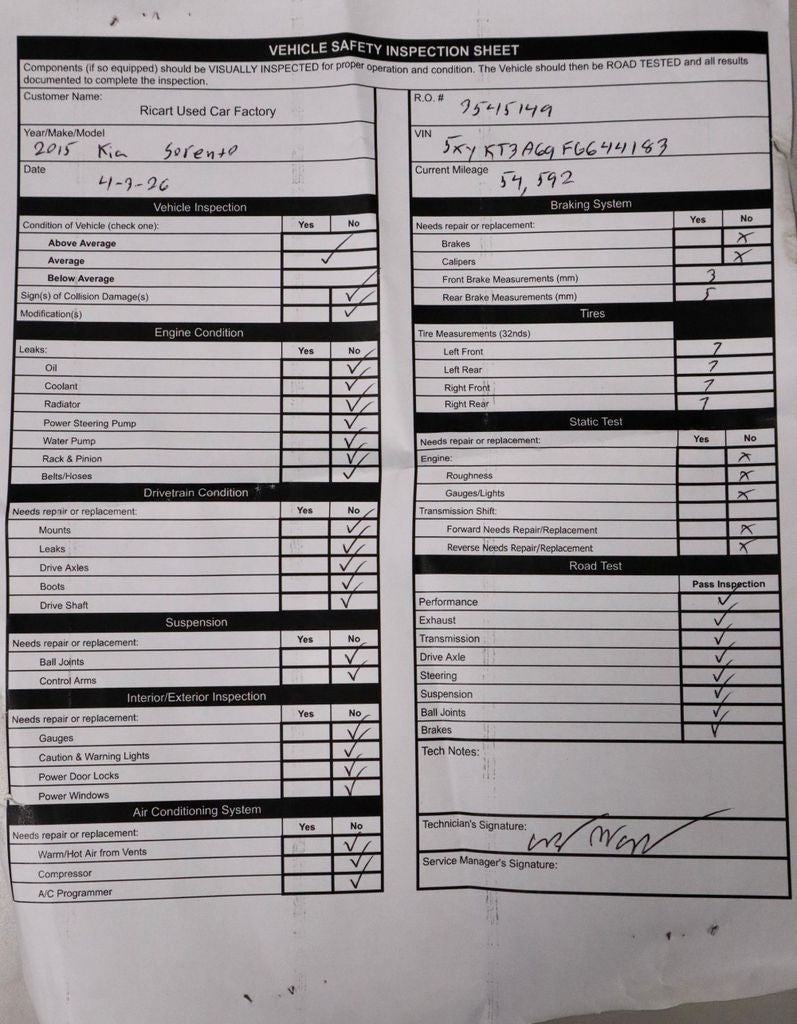 VEHICLE SAFETY INSPECTION SHEET
Components (if so equipped) should be VISUALLY INSPECTED for proper operation and condition. The Vehicle should then be ROAD TESTED and all results
documented to complete the inspection.
Customer Name:
Ricart Used Car Factory
Year/Make/Model
2015 Kia Sorento
Date
4-9-26
Vehicle Inspection
Condition of Vehicle (check one): Yes No
Above Average
Average ✓
Below Average
Sign(s) of Collision Damage(s) ✓
Modification(s) ✓
Engine Condition
Leaks: Yes No
Oil ✓
Coolant ✓
Radiator ✓
Power Steering Pump ✓
Water Pump ✓
Rack & Pinion ✓
Belts/Hoses ✓
Drivetrain Condition
Needs repair or replacement: Yes No
Mounts ✓
Leaks ✓
Drive Axles ✓
Boots ✓
Drive Shaft ✓
Suspension
Needs repair or replacement: Yes No
Ball Joints ✓
Control Arms ✓
Interior/Exterior Inspection
Needs repair or replacement: Yes No
Gauges ✓
Caution & Warning Lights ✓
Power Door Locks ✓
Power Windows ✓
Air Conditioning System
Needs repair or replacement: Yes No
Warm/Hot Air from Vents ✓
Compressor ✓
A/C Programmer ✓
R.O. #
VIN
5XYKT3A69FG644183
Current Mileage
54,592
Braking System
Needs repair or replacement: Yes No
Brakes X
Calipers X
Front Brake Measurements (mm) 3
Rear Brake Measurements (mm) 5
Tires
Tire Measurements (32nds)
Left Front 7
Left Rear 7
Right Front 7
Right Rear 7
Static Test
Needs repair or replacement: Yes No
Engine: X
Roughness X
Gauges/Lights X
Transmission Shift:
Forward Needs Repair/Replacement X
Reverse Needs Repair/Replacement X
Road Test
Pass Inspection
Performance ✓
Exhaust ✓
Transmission ✓
Drive Axle ✓
Steering ✓
Suspension ✓
Ball Joints ✓
Brakes ✓
Tech Notes:
Technician's Signature:
Service Manager's Signature: